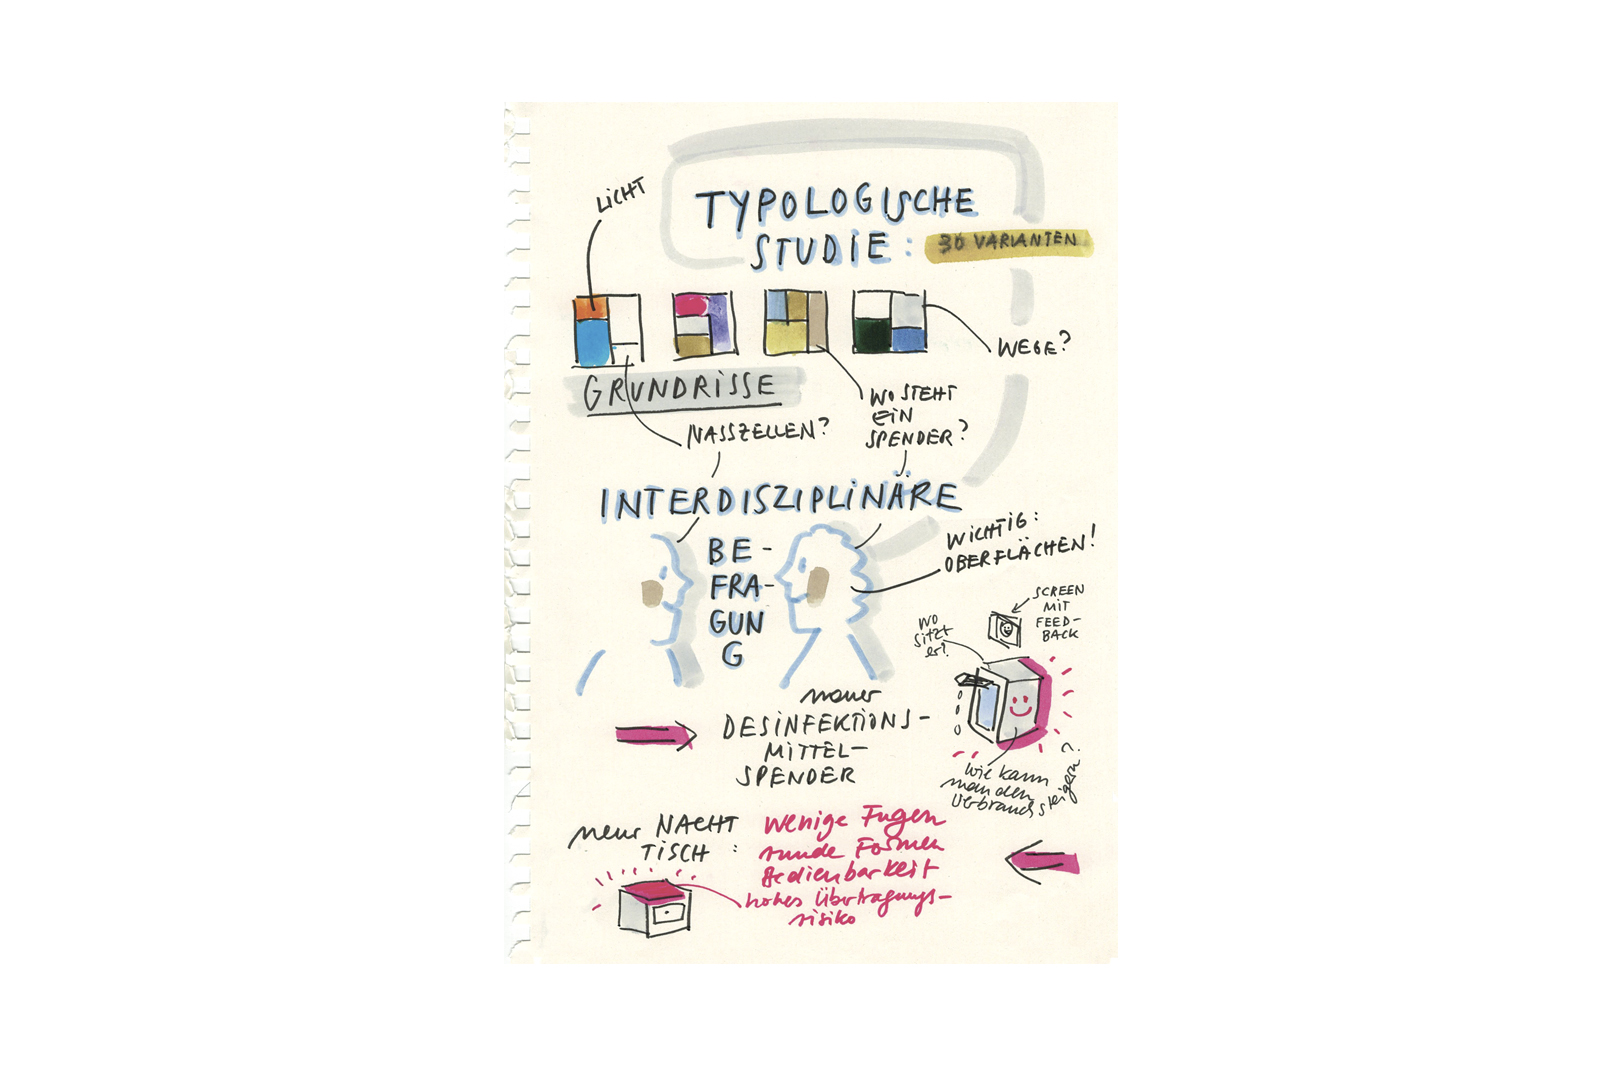 LICHT
TYPOLOGISCHE
STUDIE:
30 VARIANTEN
WEGE?
GRUNDRISSE
NASSZELLEN?
WO STEHT
EIN
SPENDER?
INTERDISZIPLINÄRE
BE-
FRA-
GUN
G
WICHTIG:
OBERFLÄCHEN!
SCREEN
MIT
FEED-
BACK
WO
SITZT
er?
neuer
DESINFEKTIONS-
MITTEL-
SPENDER
wie kann
man den
Verbrauch steigern?
neuer NACHT
TISCH:
wenige Fugen
runde Formen
Bedienbarkeit
hohes Übertragungs-
risiko